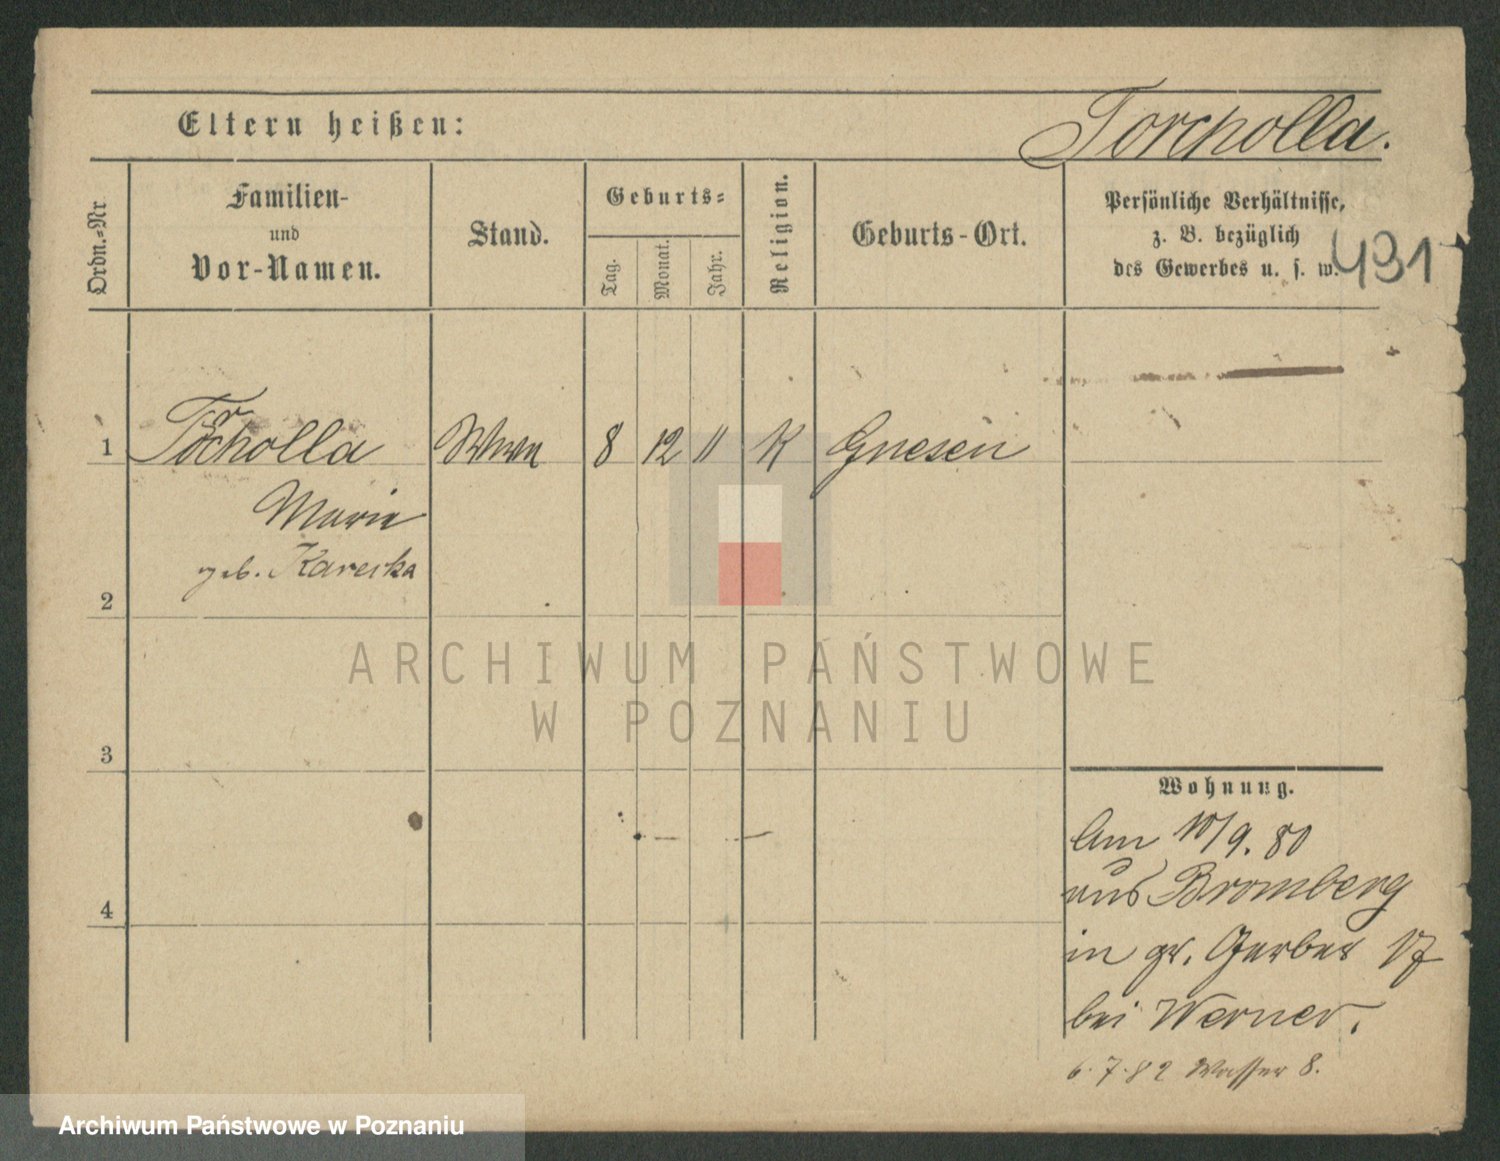 Eltern heißen:
Torcholla.
Ordn.-Nr
Familien-
und
Vor-Namen.
Stand.
Geburts-
Tag.
Monat.
Jahr.
Religion.
Geburts-Ort.
Persönliche Verhältnisse,
z. B. bezüglich
des Gewerbes u. s. w.
431
1
Torcholla
8 12 11 K Gnesen
Marie
geb. Kareska
2
ARCHIWUM PAŃSTWOWE
W POZNANIU
3
4
Wohnung.
Am 10/9. 80
aus Bromberg
in gr. Gerber 17
bei Werner.
6.7.82 Wasser 8.
Archiwum Państwowe w Poznaniu